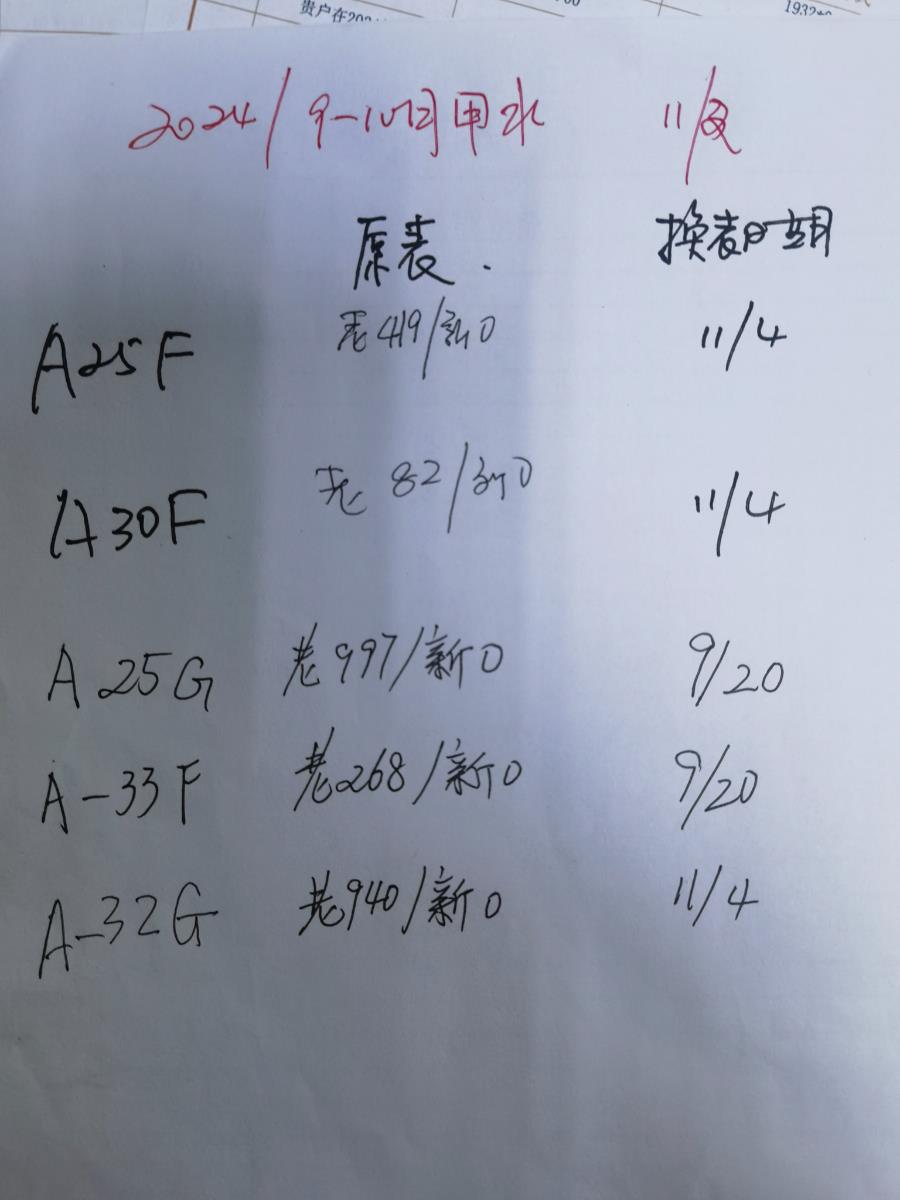 贵户在202
1932
2024/9-10月用水 11/
原表. 换表日期
A25F 老419/新0 11/4
A30F 老82/新0 11/4
A25G 老997/新0 9/20
A-33F 老268/新0 9/20
A-32G 老940/新0 11/4